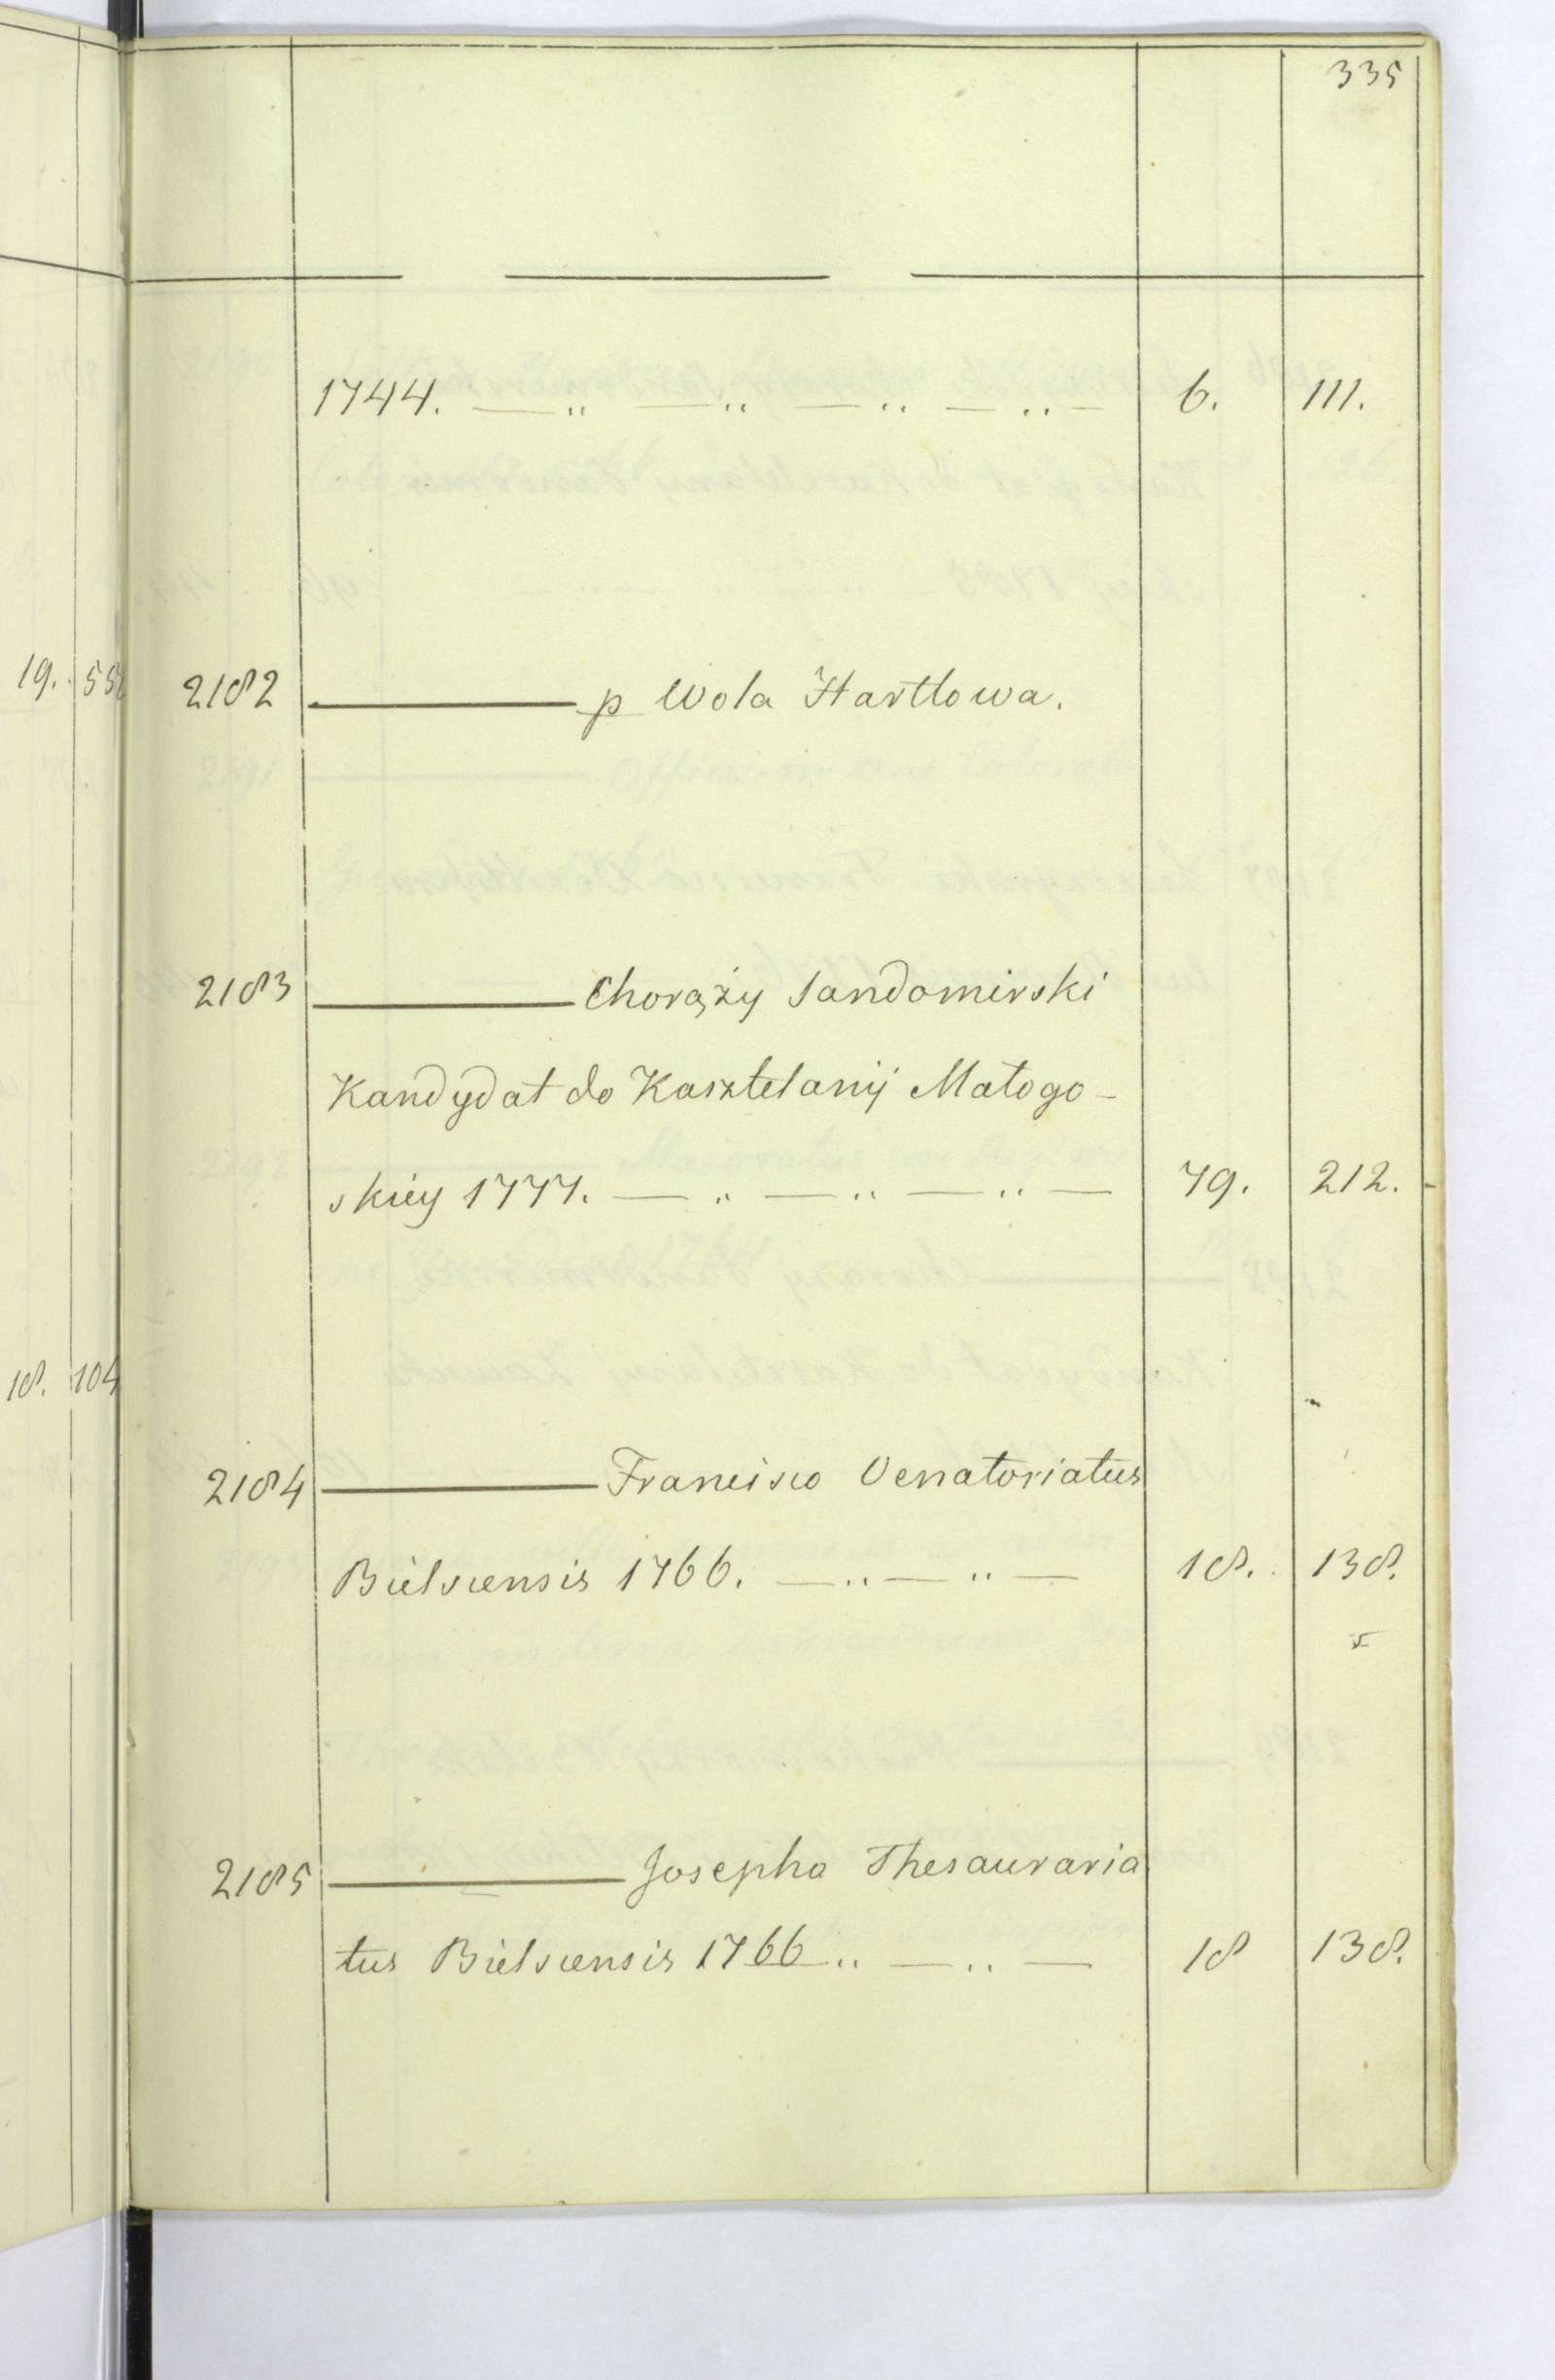 335
1744. — „ — „ — „ — „ — 6. 111.
19. 55
2182 ——— p Wola Hartlowa.
2183 ——— Chorąży Sandomirski
Kandydat do Kasztelanij Małogo-
skiey 1777. — „ — „ — „ — 79. 212.
18. 104
2184 ——— Francisco Venatoriatus
Bielscensis 1766. — „ — „ — 18. 138.
2185 ——— Josepho Thesauraria
tus Bielscensis 1766 „ — „ — 18 138.